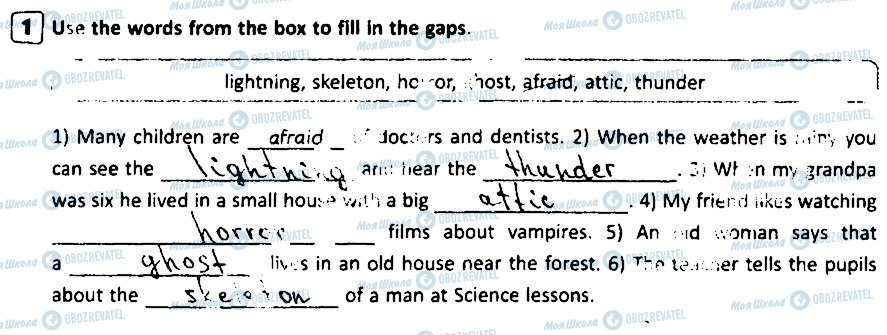 1 Use the words from the box to fill in the gaps.
lightning, skeleton, horror, ghost, afraid, attic, thunder
1) Many children are afraid of doctors and dentists. 2) When the weather is rainy you
can see the lightning and hear the thunder. 3) When my grandpa
was six he lived in a small house with a big attic. 4) My friend likes watching
horrer films about vampires. 5) An old woman says that
a ghost lives in an old house near the forest. 6) The teacher tells the pupils
about the skeleton of a man at Science lessons.